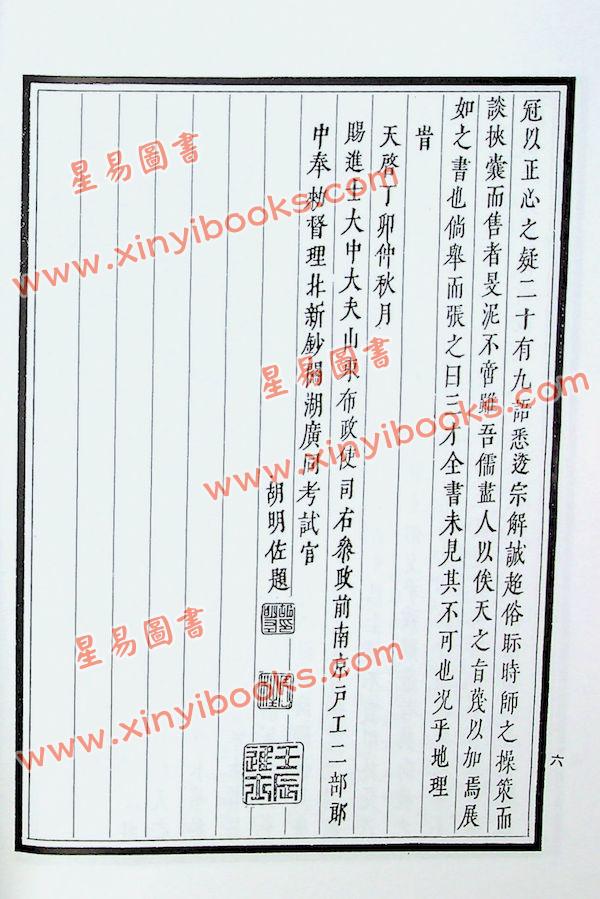 冠以正心之疑二十有九語悉遵宗解誠超俗眎時師之操策而
談挾囊而售者旻泥不啻雖吾儒盡人以俟天之旨蔑以加焉展
如之書也倘舉而張之曰三才全書未見其不可也况乎地理
旹
天啓丁卯仲秋月
賜進士大中大夫山東布政使司右叅政前南京戶工二部郎
中奉勑督理北新鈔關湖廣同考試官
胡明佐題
壬辰
進士
六
星易圖書
www.xinyibooks.com
星易圖書
www.xinyibooks.com
星易圖書
www.xinyibooks.com